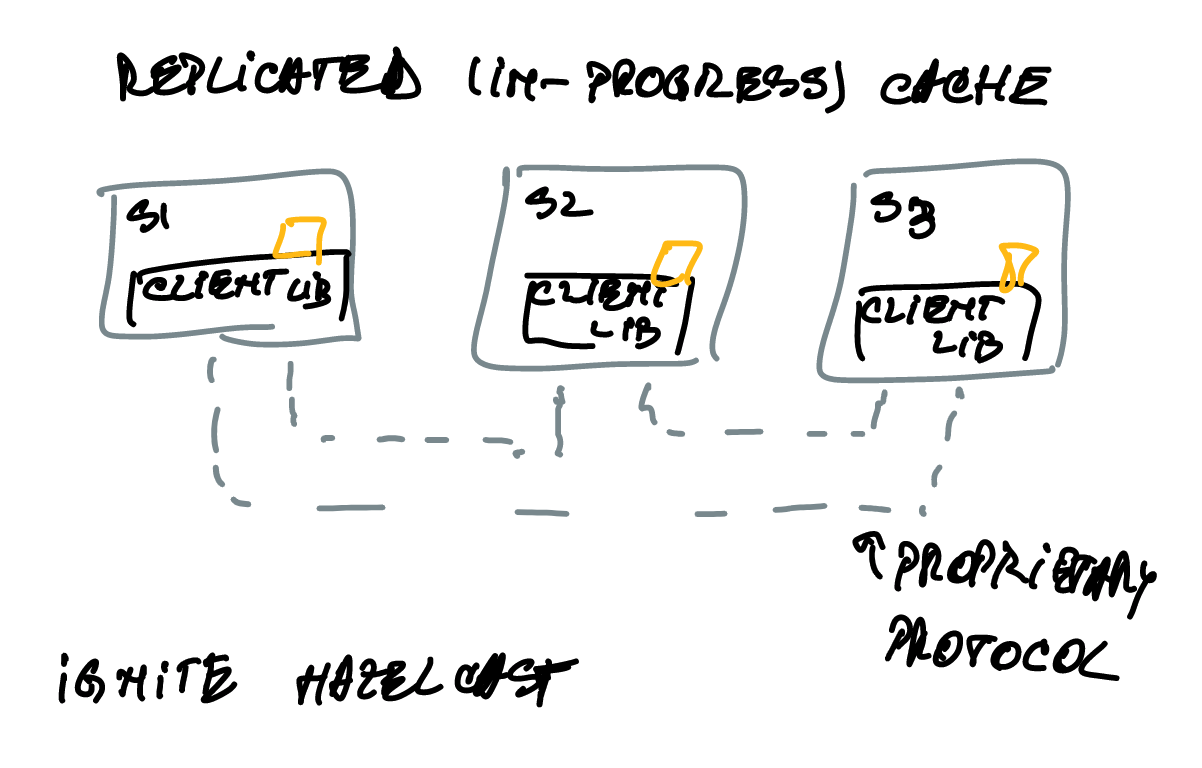 REPLICATED (IN-PROGRESS) CACHE
S1
CLIENT LIB
S2
CLIENT
LIB
S3
CLIENT
LIB
PROPRIETARY
PROTOCOL
IGNITE HAZELCAST